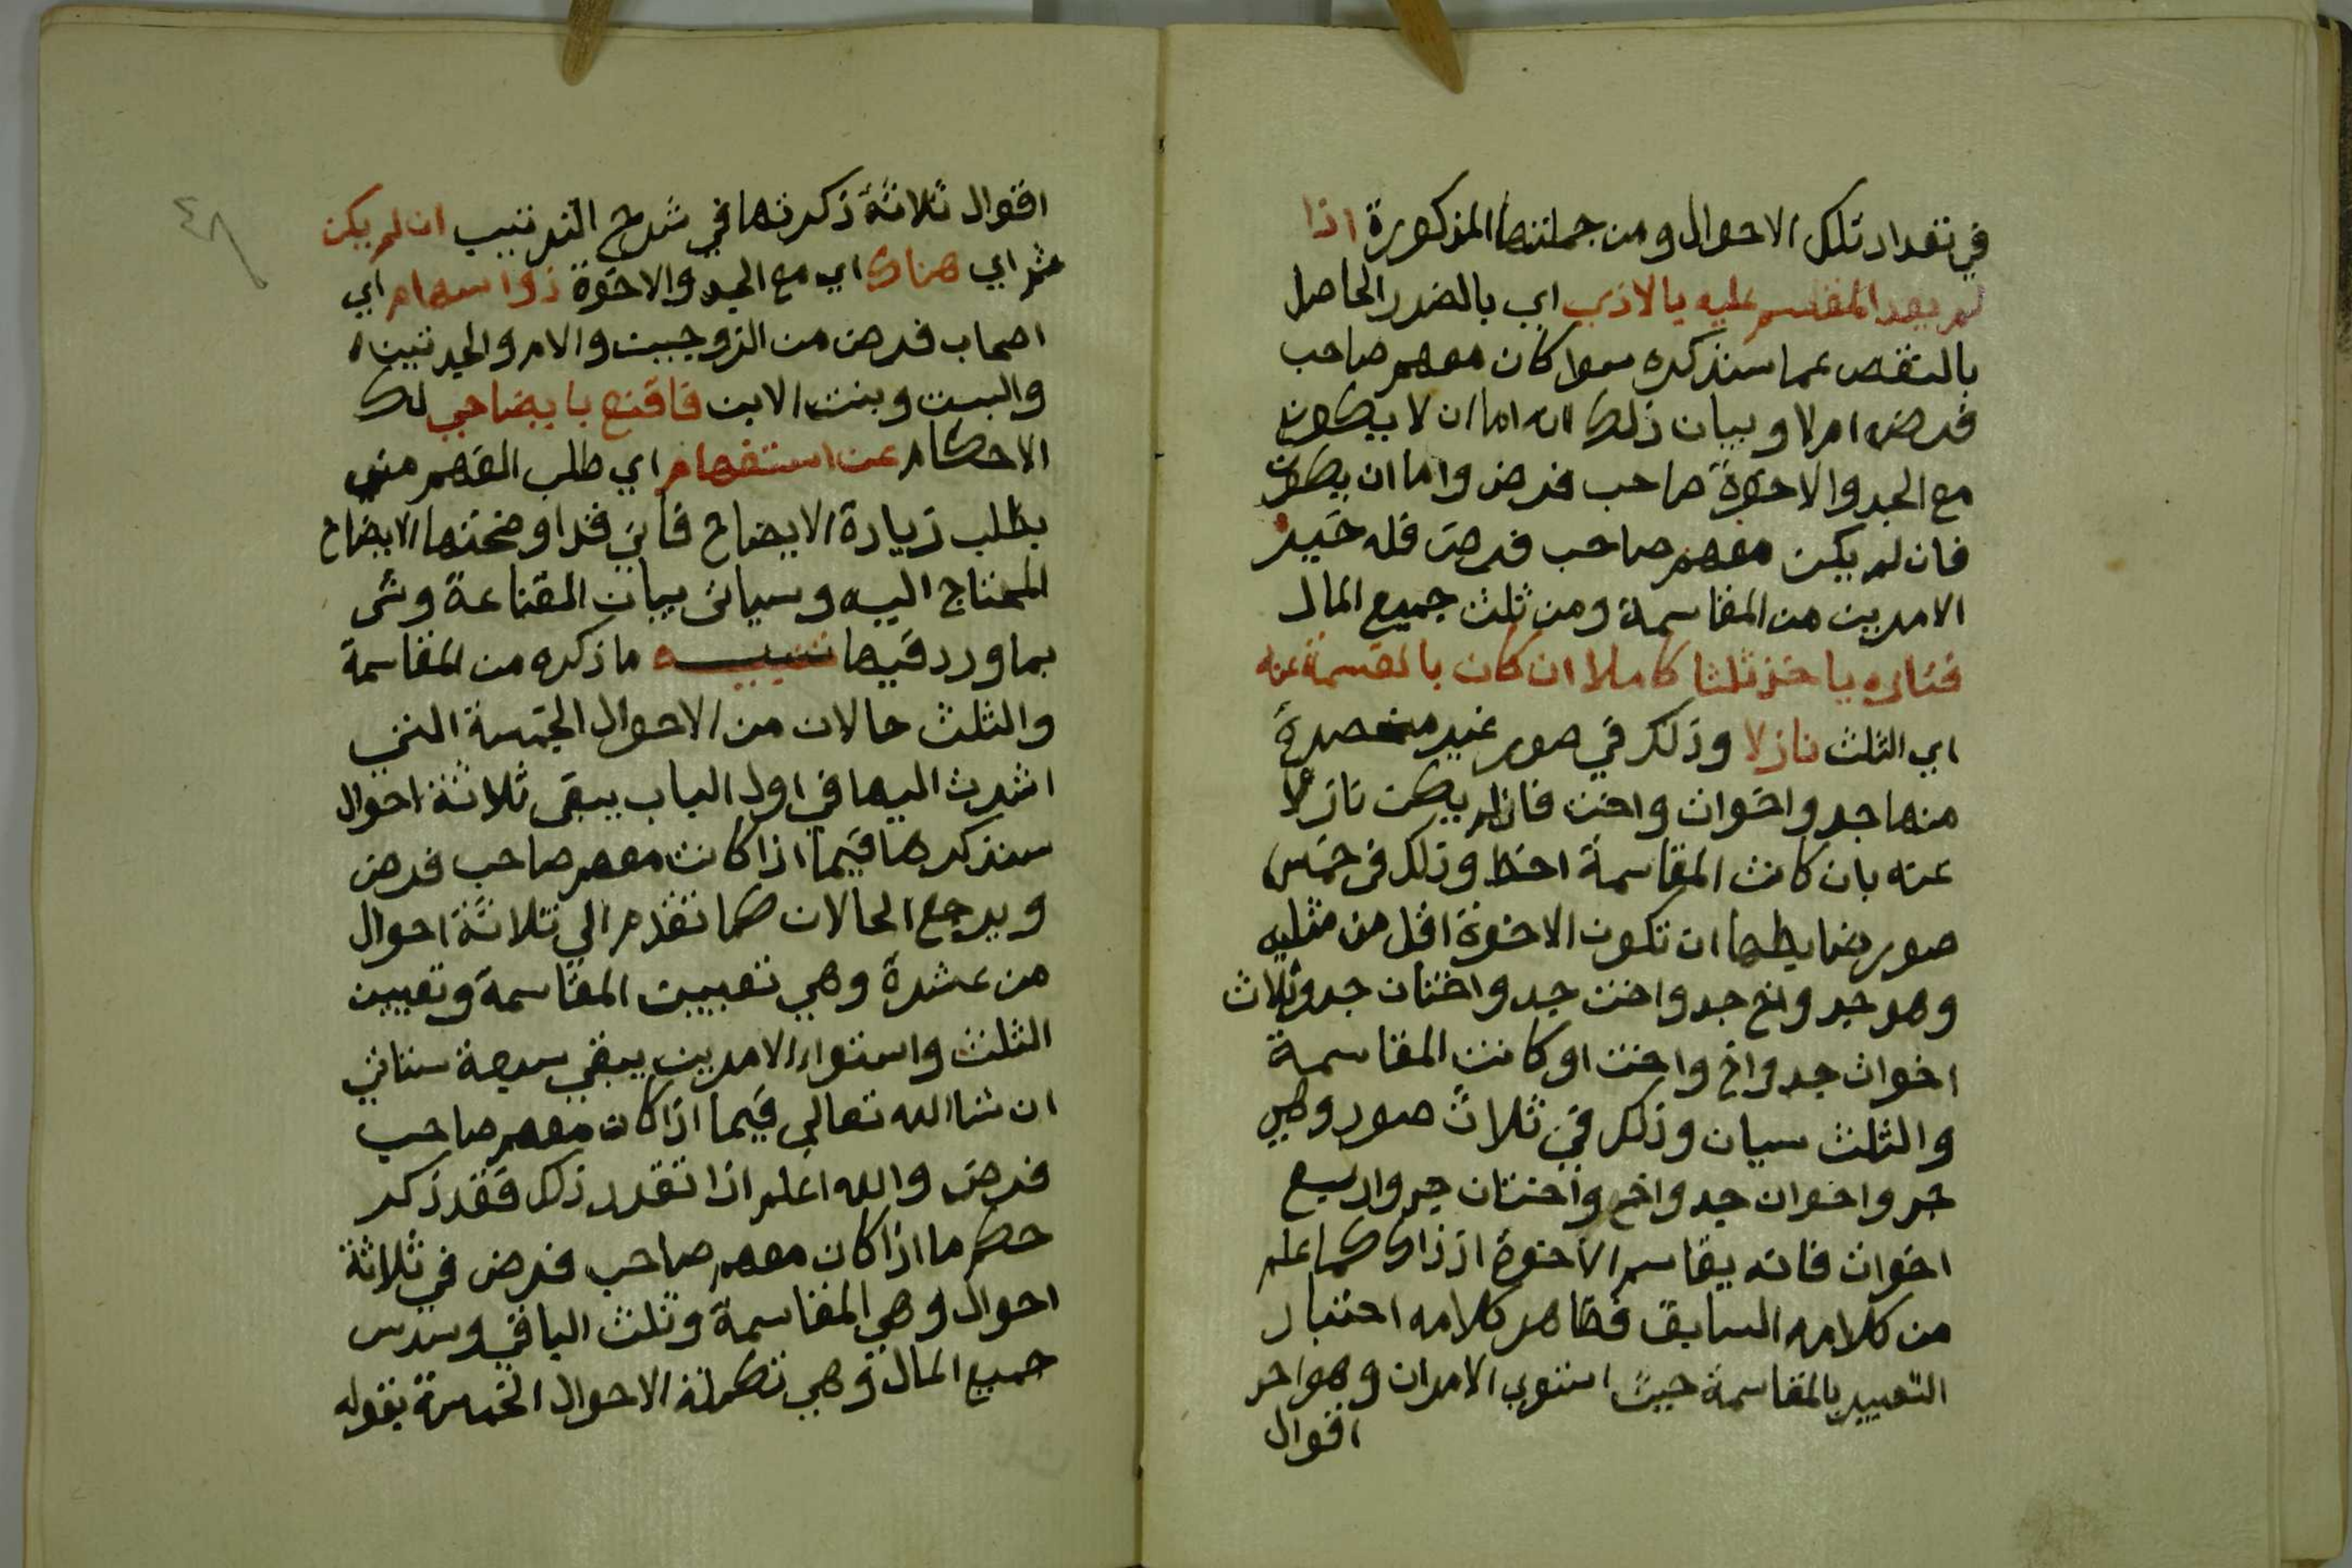 في تعداد تلك الاحوال ومن جملتها المذكورة اذا
لم يعد المقاسم عليه بالاذي اي بالضرر الحاصل
بالنقص عما سنذكره سوا كان معهم صاحب
فرض ام لا وبيان ذلك انه اما ان لا يكون
مع الجد والاخوة صاحب فرض واما ان يكون
فان لم يكن معهم صاحب فرض فله خير
الامرين من المقاسمة ومن ثلث جميع المال
فتاره ياخذ ثلثا كاملا ان كان بالقسمة عنه
اي الثلث نازلا وذلك في صور غير منحصرة
منها جد واخوان واخت فان لم يكن نازلا
عنه بان كانت المقاسمة احظ وذلك في خمس
صور ضابطها ان تكون الاخوة اقل من مثليه
وهو جد واخ جد واخت جد واختان جد وثلاث
اخوات جد واخ واخت او كانت المقاسمة
والثلث سيان وذلك في ثلاث صور وهي
جد واخوان جد واخ واختان جد واربع
اخوات فانه يقاسم الاخوة اذ ذاك كما علم
من كلامه السابق فظاهر كلامه اختيار
التعبير بالمقاسمة حيث استوي الامران وهو احد
اقوال
٤٨
اقوال ثلاثة ذكرتها في شرح الترتيب ان لم يكن
ثم اي هناك اي مع الجد والاخوة ذوا سهام اي
اصحاب فرض من الزوجين والام والجدتين
والبنت وبنت الابن فاقنع بايضاحي لك
الاحكام عن استفهام اي طلب الفهم مني
بطلب زيادة الايضاح فاني قد اوضحتها الايضاح
المحتاج اليه وسياتي بيان القناعة وشي
بما ورد فيها تنبيه ما ذكره من المقاسمة
والثلث حالان من الاحوال الخمسة التي
اشرت اليها في اول الباب يبقى ثلاثة احوال
سنذكرها فيما اذا كانت معهم صاحب فرض
ويرجع الحالان كما تقدم الي ثلاثة احوال
من عشرة وهي تعيين المقاسمة وتعيين
الثلث واستواء الامرين يبقي سبعة ستاتي
ان شا الله تعالي فيما اذا كان معهم صاحب
فرض والله اعلم اذا تقرر ذلك فقد ذكر
حكم ما اذا كان معهم صاحب فرض في ثلاثة
احوال وهي المقاسمة وثلث الباقي وسدس
جميع المال وهي تكملة الاحوال الخمسة بقوله